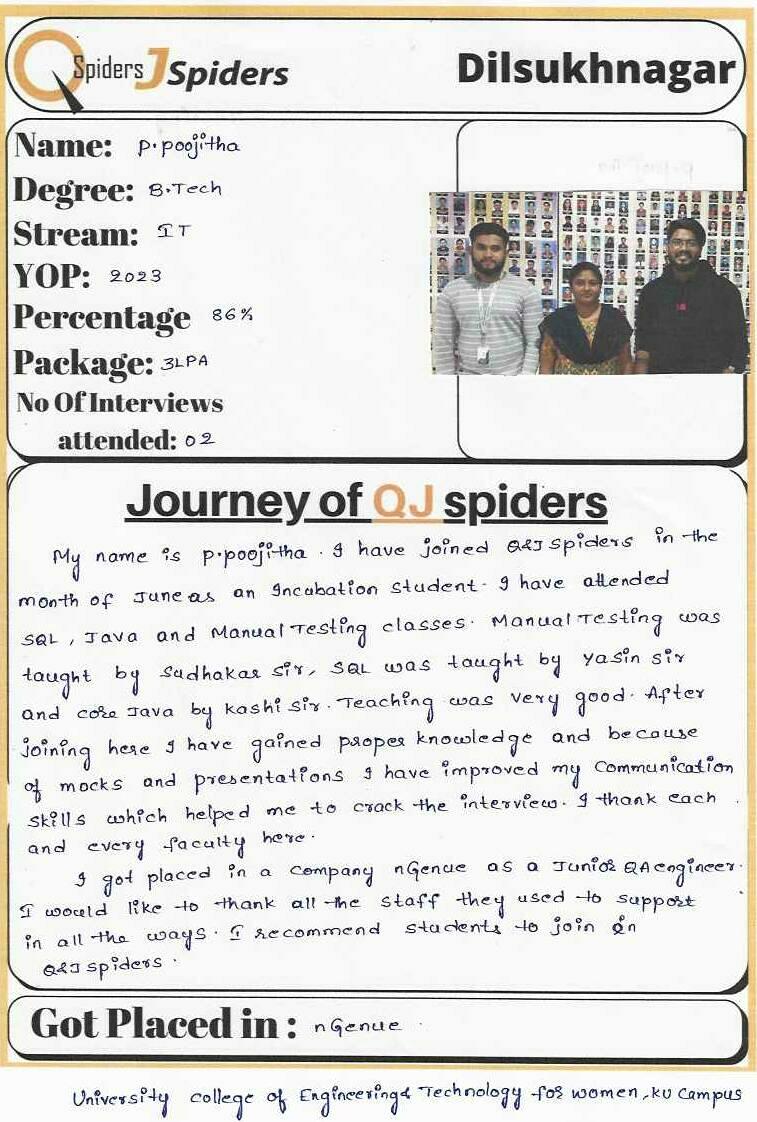 QSpiders JSpiders Dilsukhnagar
Name: P.poojitha
Degree: B.Tech
Stream: IT
YOP: 2023
Percentage 86%
Package: 3LPA
No Of Interviews
attended: 02
Journey of QJ spiders
My name is P.poojitha. I have joined Q&J Spiders in the
month of June as an Incubation Student. I have attended
SQL, Java and Manual Testing classes. Manual Testing was
taught by Sudhakar Sir, SQL was taught by Yasin Sir
and core Java by Kashi Sir. Teaching was very good. After
joining here I have gained proper knowledge and because
of mocks and presentations I have improved my Communication
skills which helped me to crack the interview. I thank each
and every faculty here.
I got placed in a company nGenue as a Junior QA engineer.
I would like to thank all the staff they used to support
in all the ways. I recommend students to join in
Q&J Spiders.
Got Placed in : nGenue
University college of Engineering& Technology for women, KU Campus